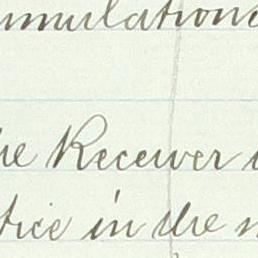 mulations
he Receiver
tice in the